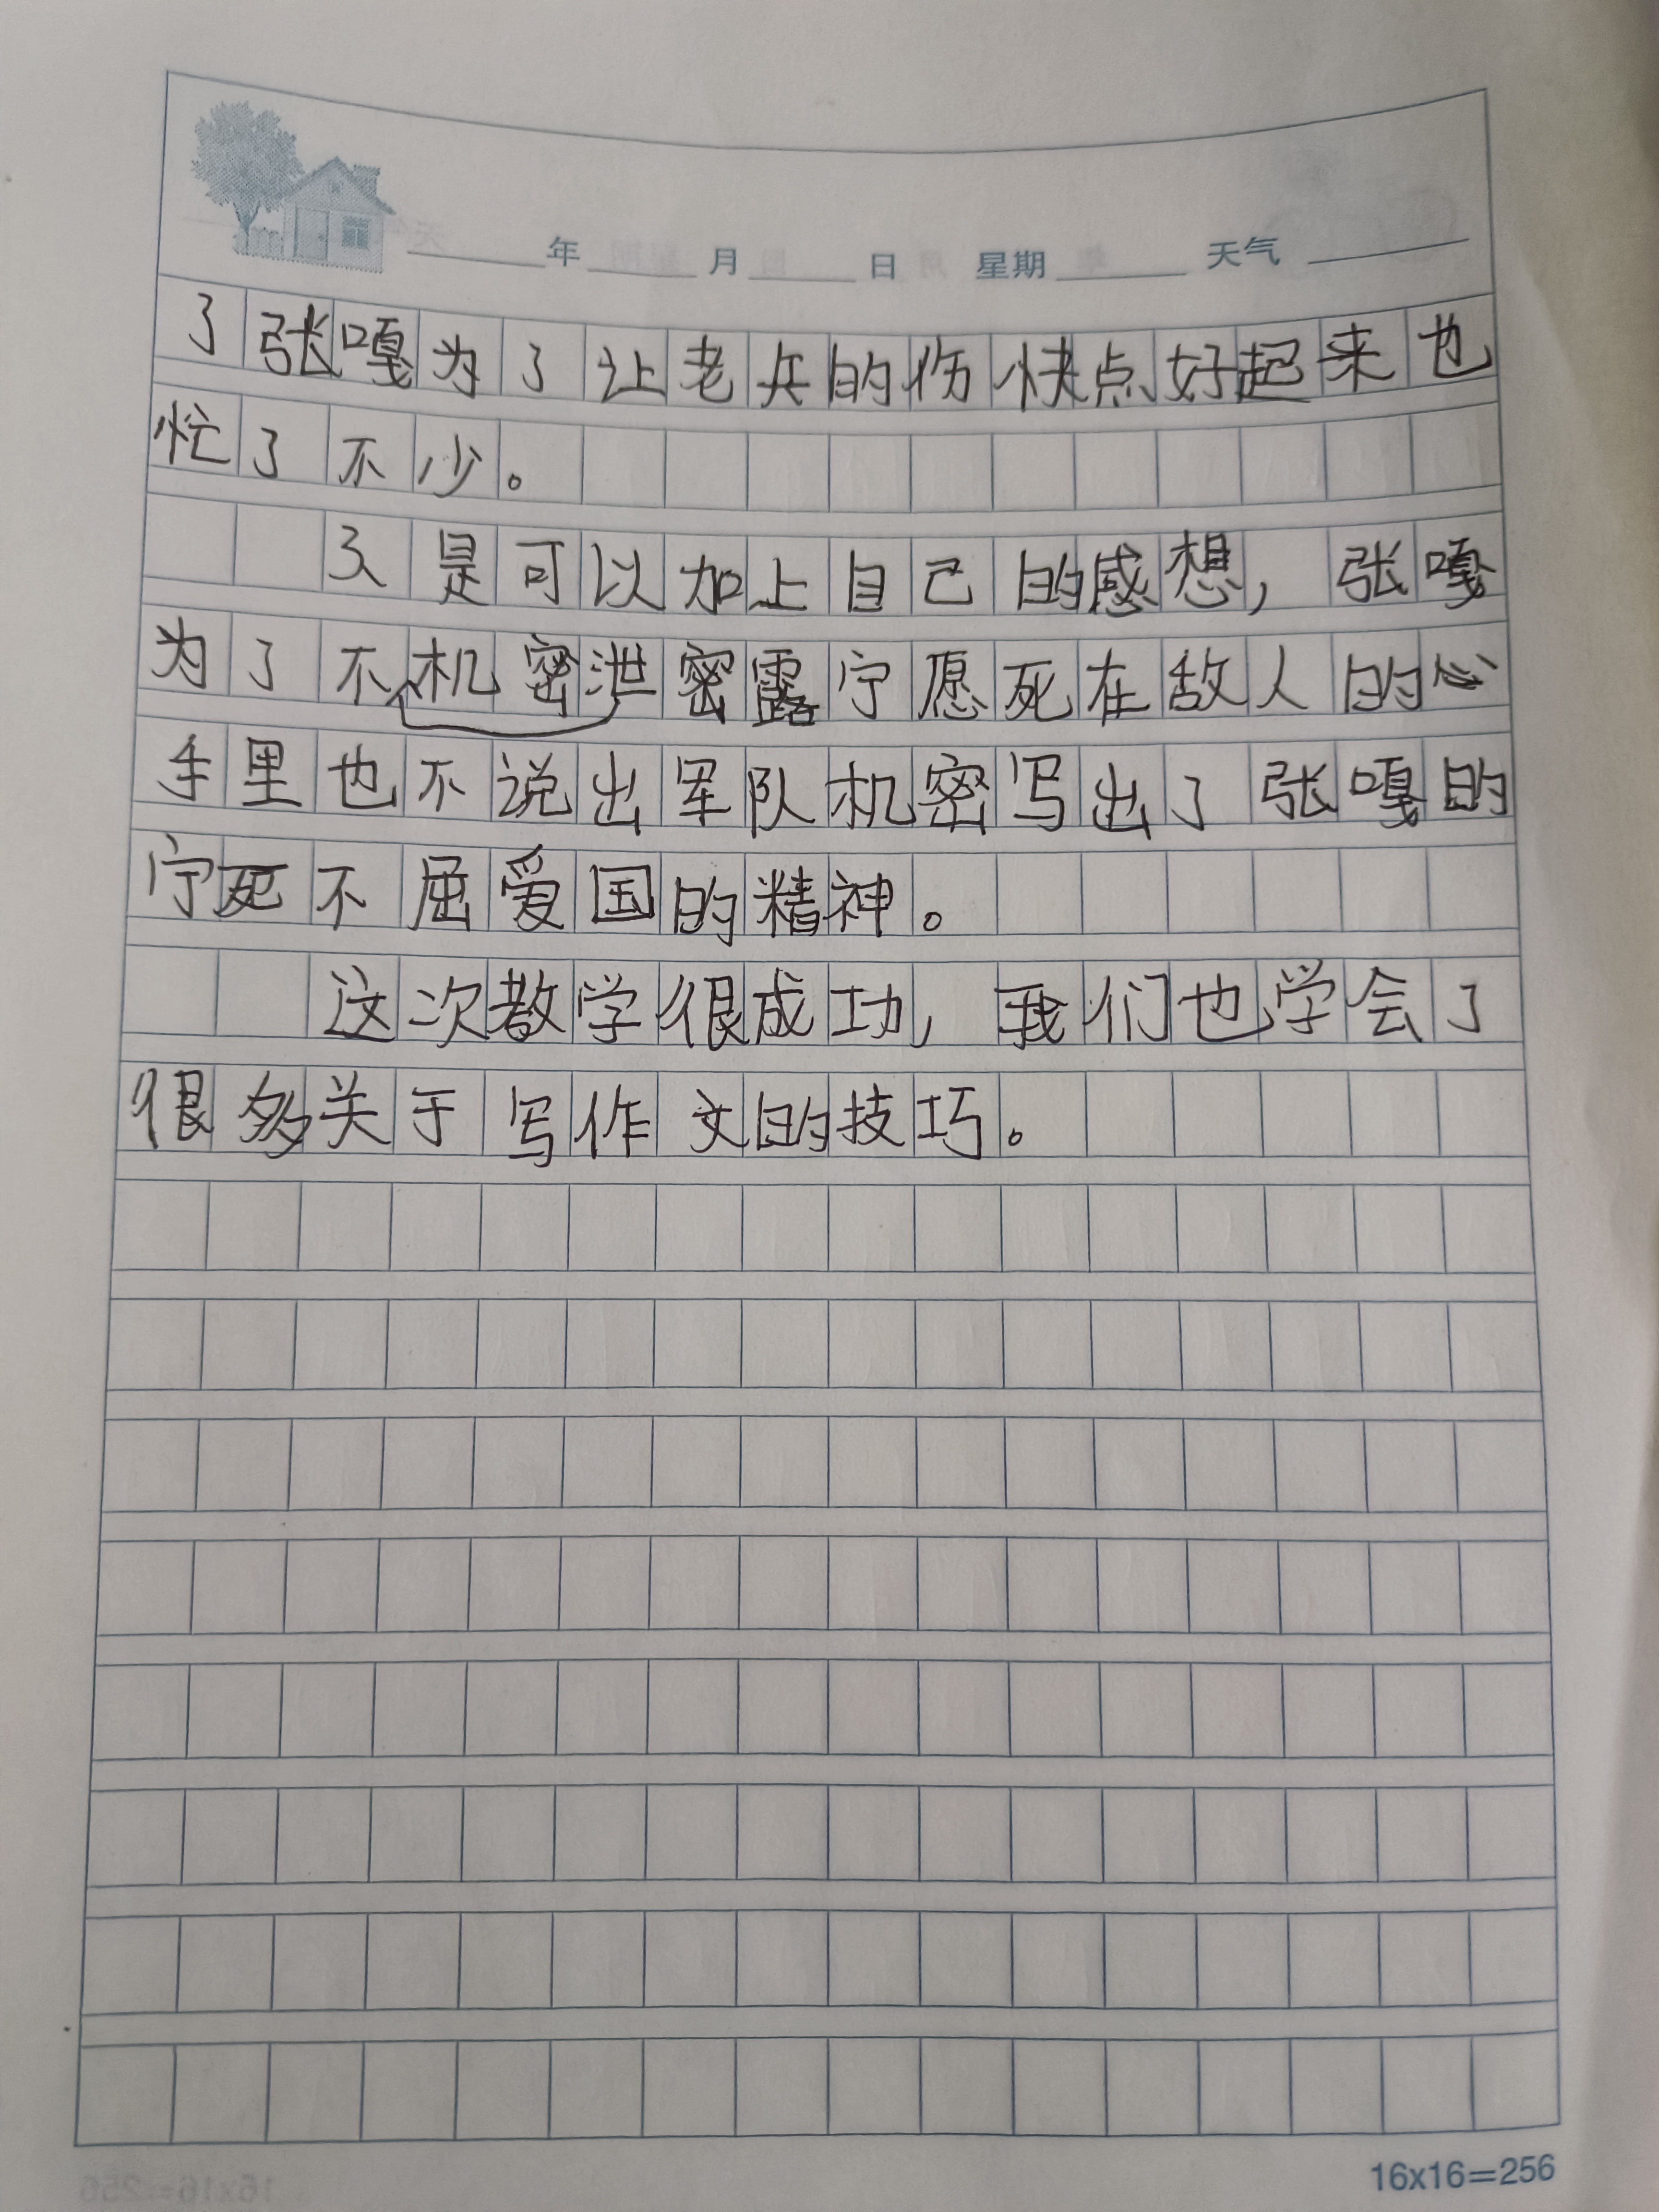 年 月 日 星期 天气
了张嘎为了让老兵的伤快点好起来也
忙了不少。
3人是可以加上自己的感想,张嘎
为了不机密泄密露宁愿死在敌人的心
手里也不说出军队机密写出了张嘎的
宁死不屈爱国的精神。
这次教学很成功,我们也学会了
很多关于写作文的技巧。
16x16=256